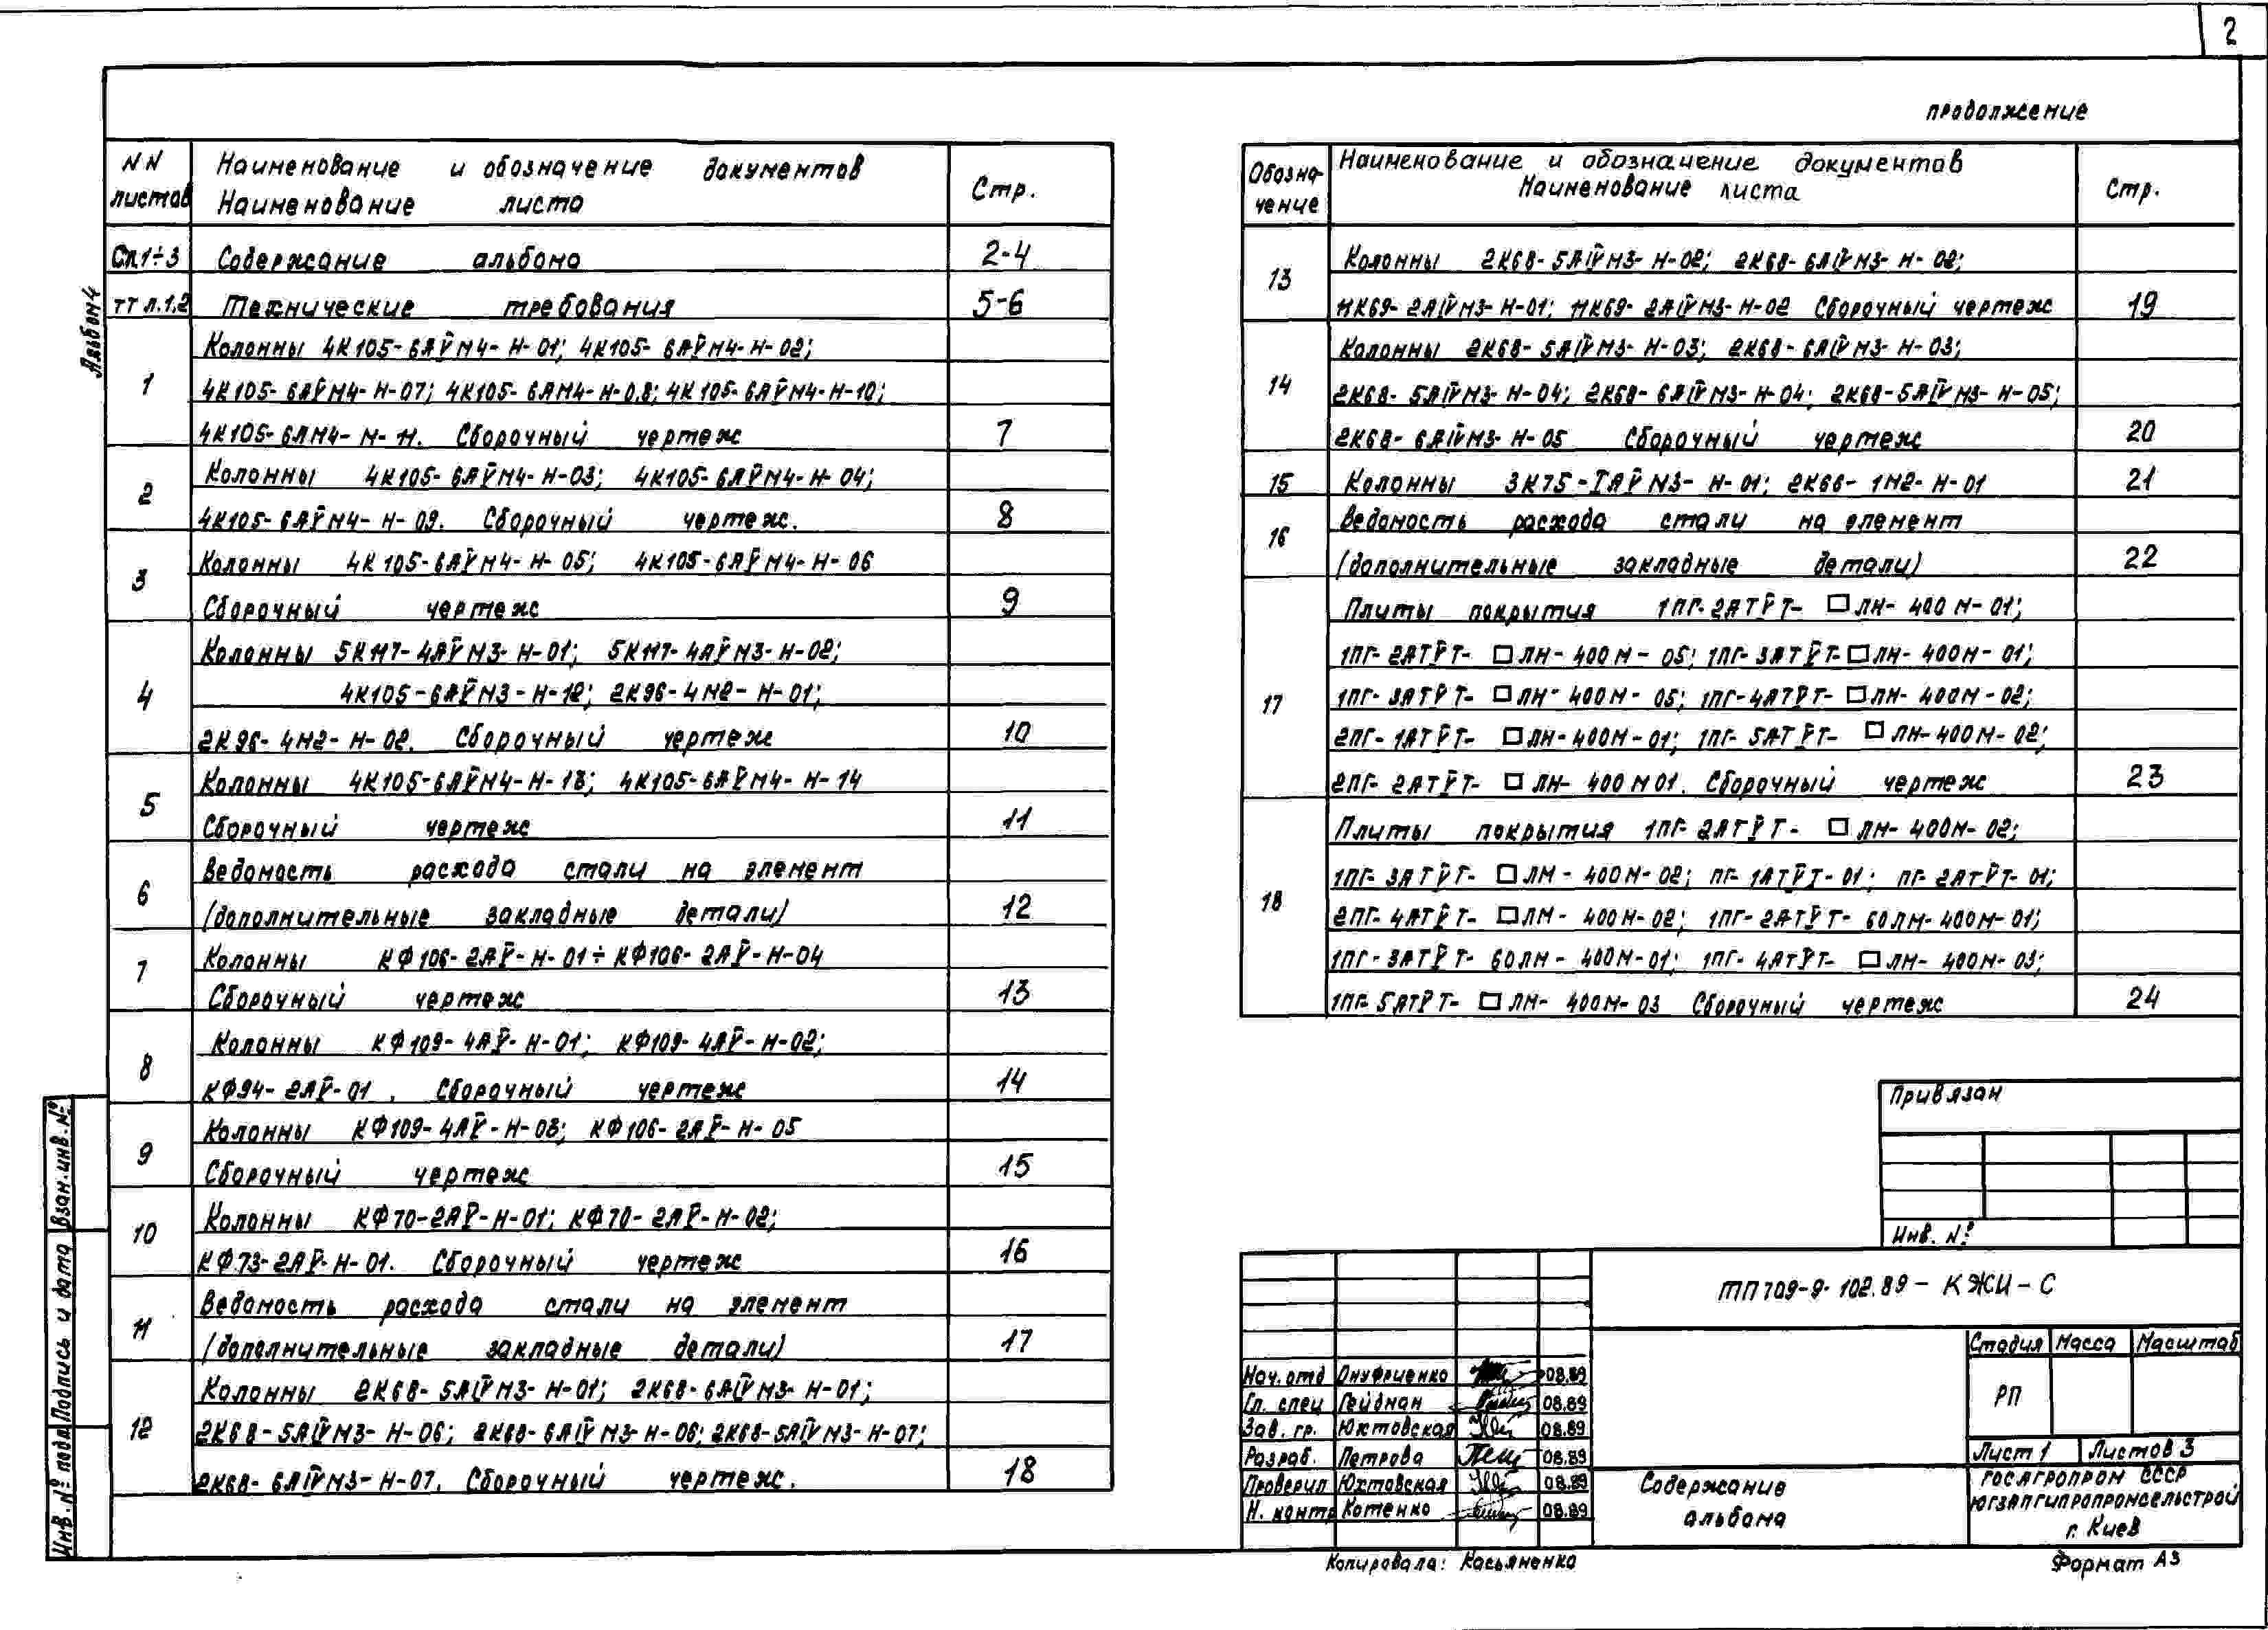 2
Альбом 4
NN листов
Наименование и обозначение документов
Наименование листа
Стр.
Сл.1÷3 Содержание альбома 2-4
ТТ л.1,2 Технические требования 5-6
1 Колонны 4К105-6АV̄М4-Н-01; 4К105-6АV̄М4-Н-02;
4К105-6АV̄М4-Н-07; 4К105-6АМ4-Н-08; 4К105-6АV̄М4-Н-10;
4К105-6АМ4-Н-11. Сборочный чертеж 7
2 Колонны 4К105-6АV̄М4-Н-03; 4К105-6АV̄М4-Н-04;
4К105-6АV̄М4-Н-09. Сборочный чертеж. 8
3 Колонны 4К105-6АV̄М4-Н-05; 4К105-6АV̄М4-Н-06
Сборочный чертеж 9
4 Колонны 5К117-4АV̄М3-Н-01; 5К117-4АV̄М3-Н-02;
4К105-6АV̄М3-Н-12; 2К96-4М2-Н-01;
2К96-4М2-Н-02. Сборочный чертеж 10
5 Колонны 4К105-6АV̄М4-Н-13; 4К105-6АV̄М4-Н-14
Сборочный чертеж 11
6 Ведомость расхода стали на элемент
(дополнительные закладные детали) 12
7 Колонны КФ106-2АV̄-Н-01÷КФ106-2АV̄-Н-04
Сборочный чертеж 13
8 Колонны КФ109-4АV̄-Н-01; КФ109-4АV̄-Н-02;
КФ94-2АV̄-01. Сборочный чертеж 14
9 Колонны КФ109-4АV̄-Н-03; КФ106-2АV̄-Н-05
Сборочный чертеж 15
10 Колонны КФ70-2АV̄-Н-01; КФ70-2АV̄-Н-02;
КФ73-2АV̄-Н-01. Сборочный чертеж 16
11 Ведомость расхода стали на элемент
(дополнительные закладные детали) 17
12 Колонны 2К68-5АIVМ3-Н-01; 2К68-6АIVМ3-Н-01;
2К68-5АIVМ3-Н-06; 2К68-6АIVМ3-Н-06; 2К68-5АIVМ3-Н-07;
2К68-6АIVМ3-Н-07. Сборочный чертеж. 18
продолжение
Обозначение
Наименование и обозначение документов
Наименование листа
Стр.
13 Колонны 2К68-5АIVМ3-Н-02; 2К68-6АIVМ3-Н-02;
11К69-2АIVМ3-Н-01; 11К69-2АIVМ3-Н-02 Сборочный чертеж 19
14 Колонны 2К68-5АIVМ3-Н-03; 2К68-6АIVМ3-Н-03;
2К68-5АIVМ3-Н-04; 2К68-6АIVМ3-Н-04; 2К68-5АIVМ3-Н-05;
2К68-6АIVМ3-Н-05 Сборочный чертеж 20
15 Колонны 3К75-IАV̄М3-Н-01; 2К66-1М2-Н-01 21
16 Ведомость расхода стали на элемент
(дополнительные закладные детали) 22
17 Плиты покрытия 1ПГ-2АТV̄Т-□ЛН-400Н-01;
1ПГ-2АТV̄Т-□ЛН-400Н-05; 1ПГ-3АТV̄Т-□ЛН-400Н-01;
1ПГ-3АТV̄Т-□ЛН-400Н-05; 1ПГ-4АТV̄Т-□ЛН-400Н-02;
2ПГ-1АТV̄Т-□ЛН-400Н-01; 1ПГ-5АТV̄Т-□ЛН-400Н-02;
2ПГ-2АТV̄Т-□ЛН-400Н01. Сборочный чертеж 23
18 Плиты покрытия 1ПГ-2АТV̄Т-□ЛН-400Н-02;
1ПГ-3АТV̄Т-□ЛН-400Н-02; ПГ-1АТV̄Т-01; ПГ-2АТV̄Т-01;
2ПГ-4АТV̄Т-□ЛН-400Н-02; 1ПГ-2АТV̄Т-60ЛН-400Н-01;
1ПГ-3АТV̄Т-60ЛН-400Н-01; 1ПГ-4АТV̄Т-□ЛН-400Н-03;
1ПГ-5АТV̄Т-□ЛН-400Н-03 Сборочный чертеж 24
Привязан
Инв. №
ТП 709-9-102.89-КЖИ-С
Стадия Масса Масштаб
РП
Лист 1 Листов 3
Нач. отд Онуфриенко 08.89
Гл. спец Гейдман 08.89
Зав. гр. Юхтовская 08.89
Разраб. Петрова 08.89
Проверил Юхтовская 08.89
Н. контр Котенко 08.89
Содержание альбома
ГОСАГРОПРОМ СССР
ЮГЗАПГИПРОПРОМСЕЛЬСТРОЙ
г. Киев
Копировала: Касьяненко
Формат А3
Инв. № подл Подпись и дата Взам. инв. №